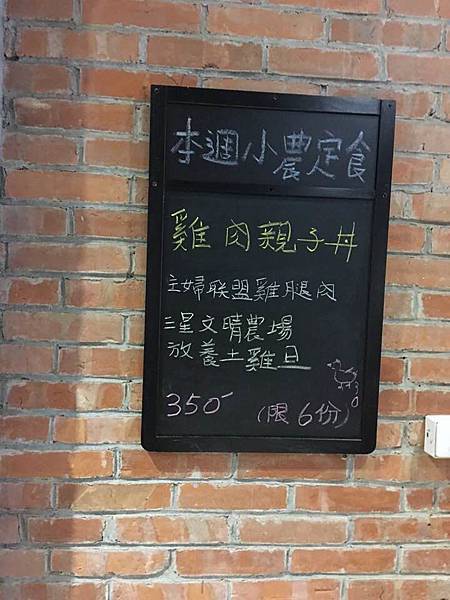 本週小農定食
雞肉親子丼
主婦联盟雞腿肉
三星文晴農場
放養土雞旦
350 (限6份)